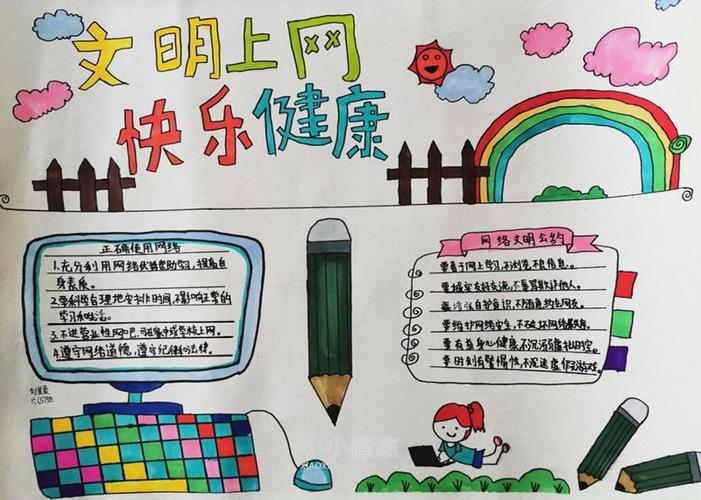 文明上网
快乐健康
正确使用网络
1.充分利用网络优势帮助学习,提高自
身素质。
2.要科学合理地安排时间,不影响正常的
学习和生活。
3.不进营业性网吧,可在家中或学校上网。
4.遵守网络道德,遵守纪律和法律。
六(5)班
网络文明公约
要善于网上学习,不浏览不良信息。
要诚实友好交流,不辱骂欺诈他人。
要增强自护意识,不随意约会网友。
要维护网络安全,不破坏网络秩序。
要有益身心健康,不沉溺虚拟时空。
要时刻有警惕性,不沉迷游戏。
小小画家